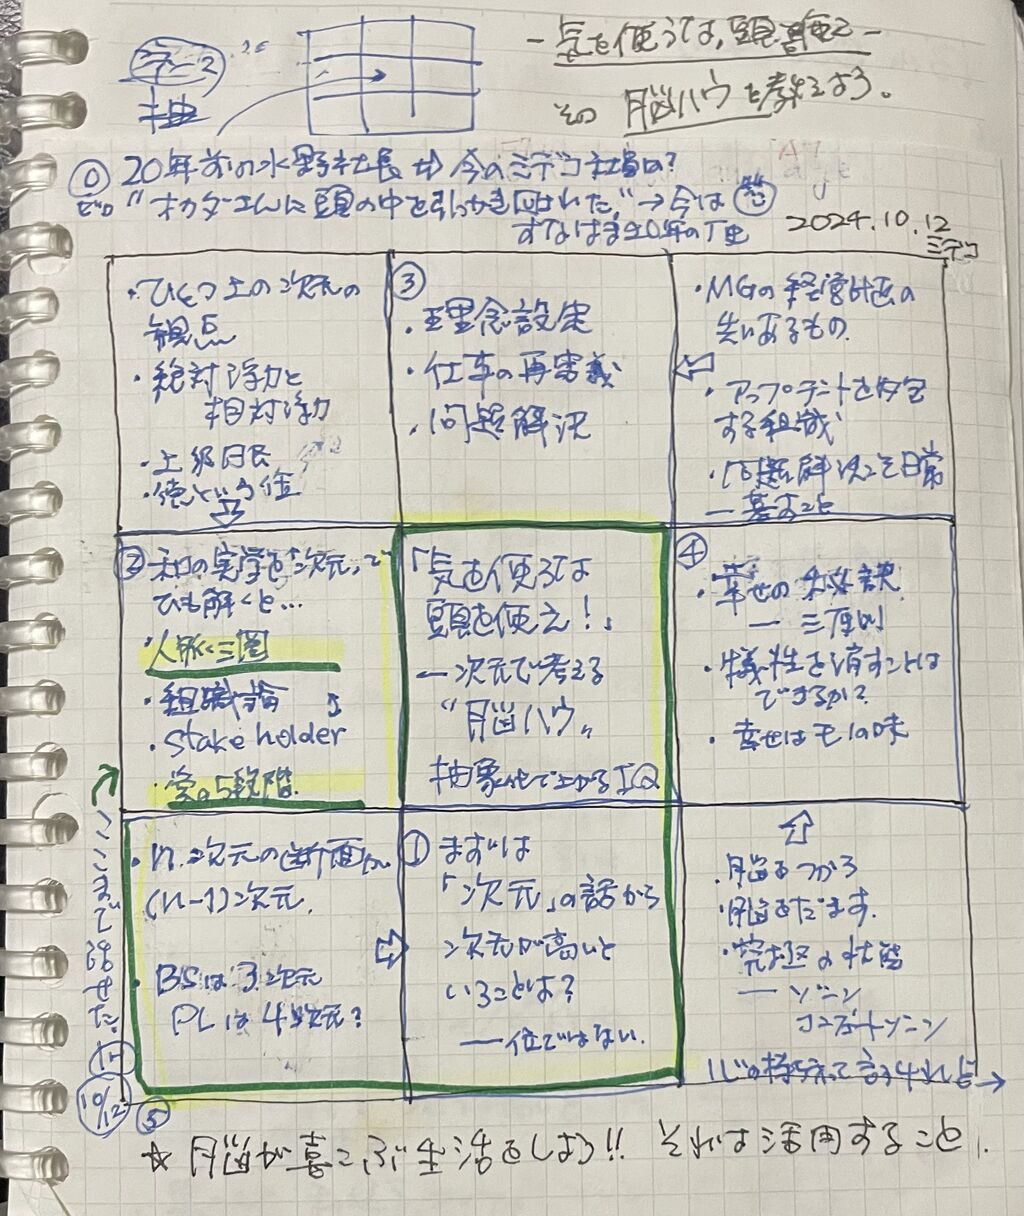 - 気を使うては、頭を使え -
その 脳ハウを教えよう。
⓪ 20年前の水野社長 ⇨ 今のミテコ社員は?
ゼロ "オカダさんに頭の中を引っかき回された" → 今は
すなはま20年の
2024.10.12
ミテコ
・ひとつ上の次元の
視点
・絶対浮力と
相対浮力
・上級国民
・徳という位
③
・理念設定
・仕事の再定義
・問題解決
・MGの経営計画の
先にあるもの
・アップデートを
する組織
・問題解決こそ日常
― 基本こと
② 和の実学を「次元」で
ひも解くと…
・人脈三圏
・組織論
・stake holder
・愛の5段階
「気を使うては
頭を使え!」
― 次元で考える
"脳ハウ"
抽象化で上がるIQ
④
・幸せの秘訣
― 三原則
・犠牲を消すことは
できるか?
・幸せはモノの味
・n次元の断面が
(n-1)次元.
・BSは3次元
PLは4次元?
① まずは
「次元」の話から
次元が高いと
いうことは?
― 位ではない.
・脳をつかう
・脳をだます.
・究極の状態
― ゾーン
コンフォートゾーン
ここまで話せた。
10/12
⑤
☆ 脳が喜こぶ生活をしよう!! それは活用すること.